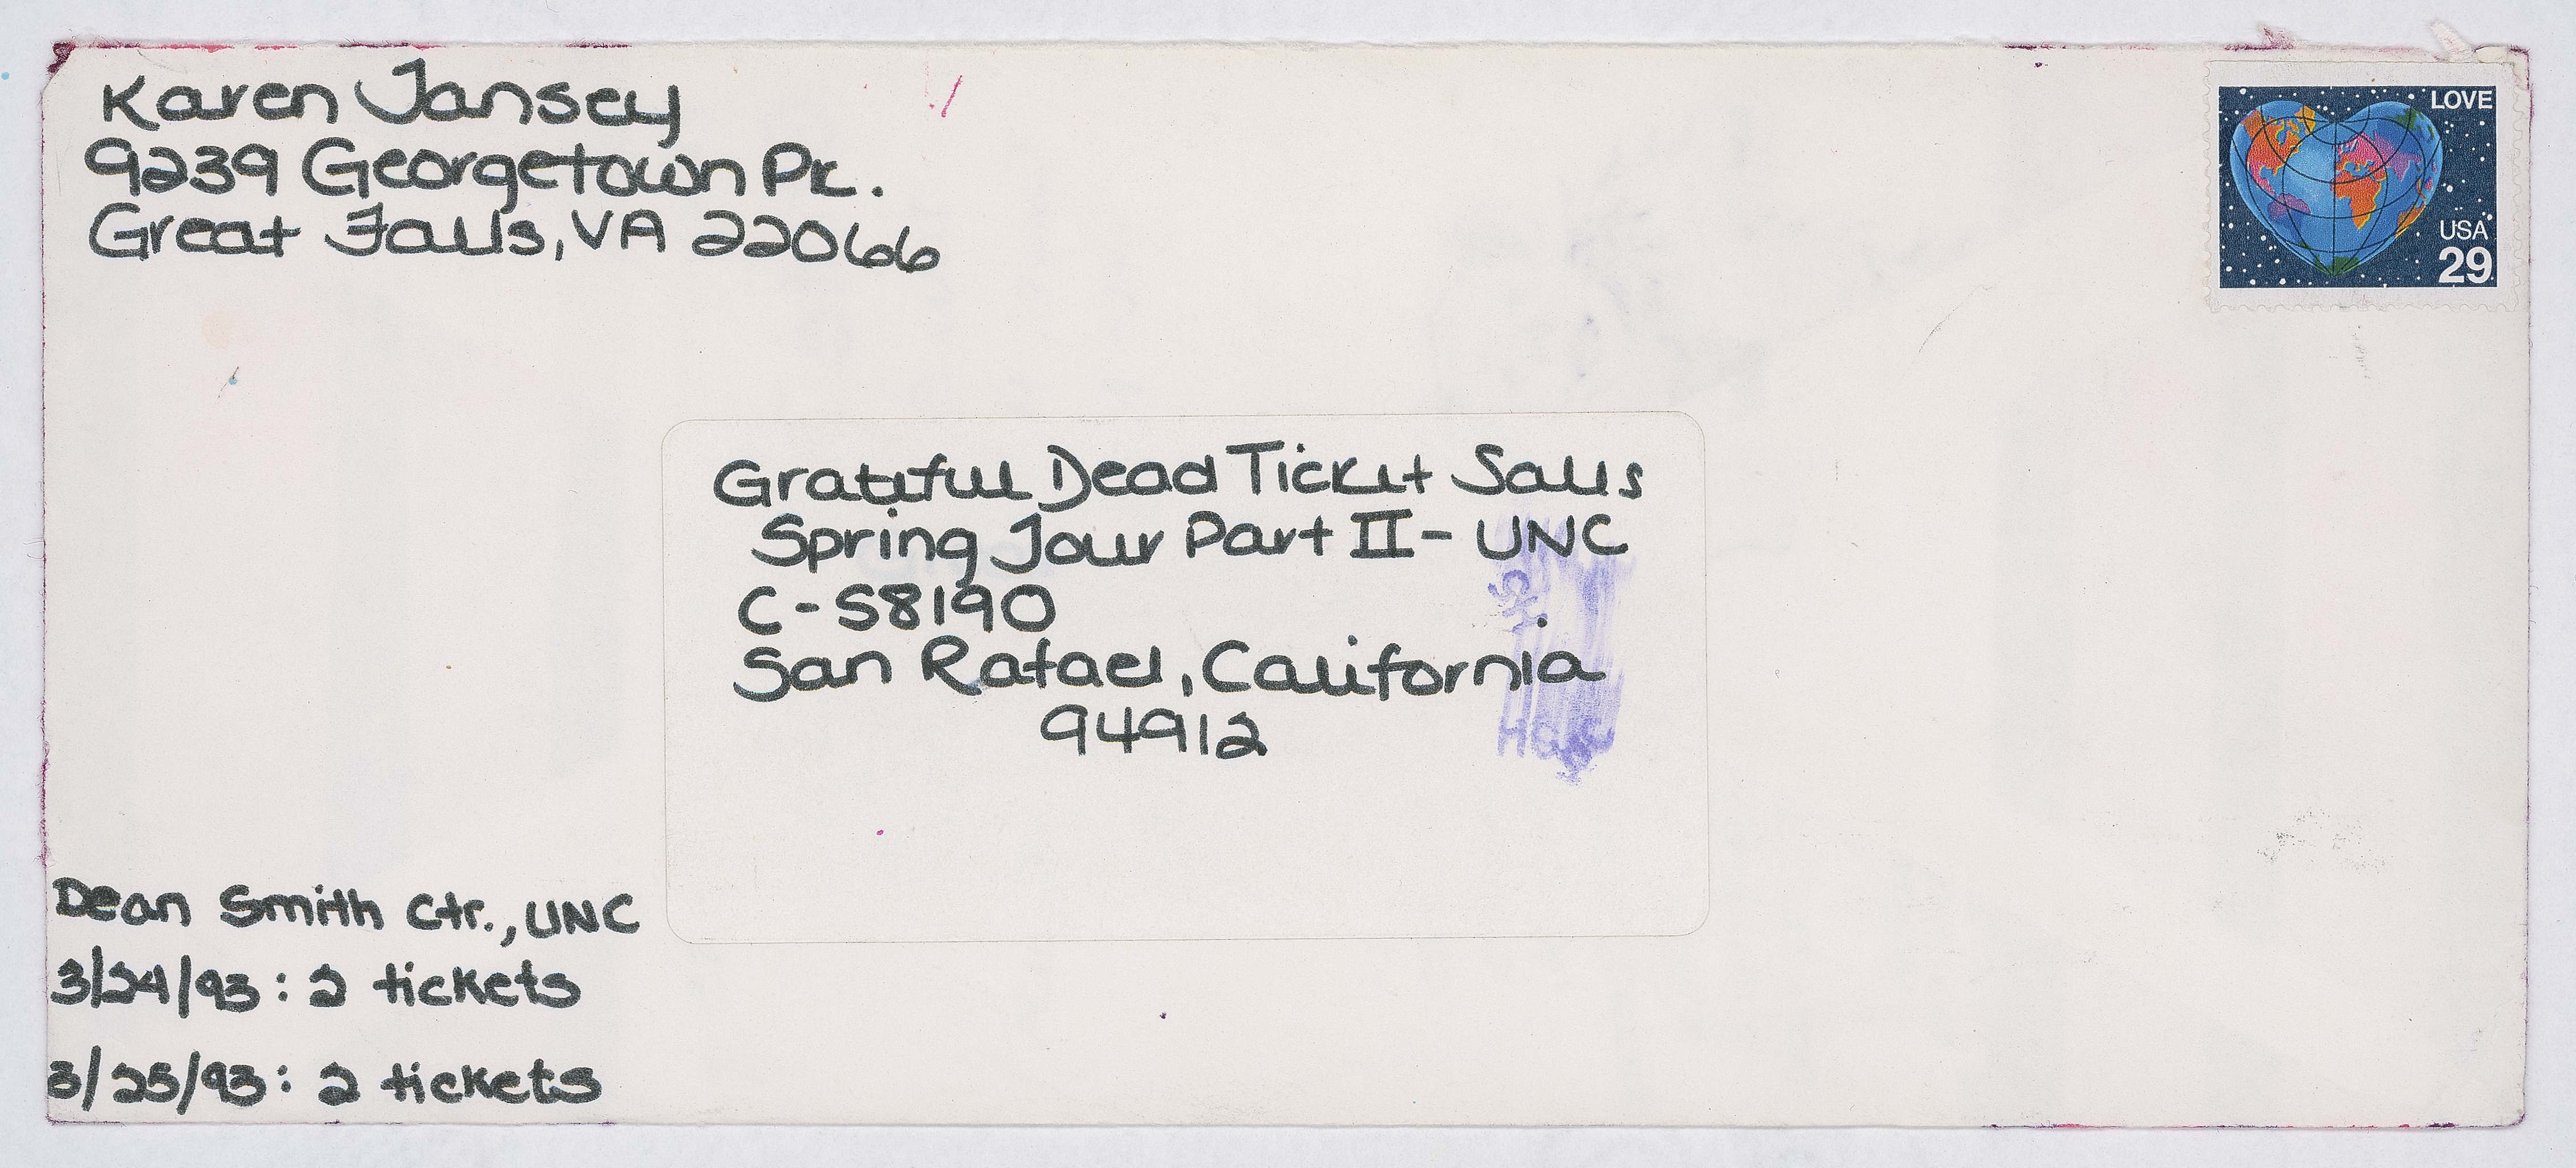 Karen Tansey
9239 Georgetown Pk.
Great Falls, VA 22066
LOVE
USA
29
Grateful Dead Ticket Sales
Spring Tour Part II - UNC
C-S8190
San Rafael, California
94912
Dean Smith Ctr., UNC
3/24/93: 2 tickets
3/25/93: 2 tickets